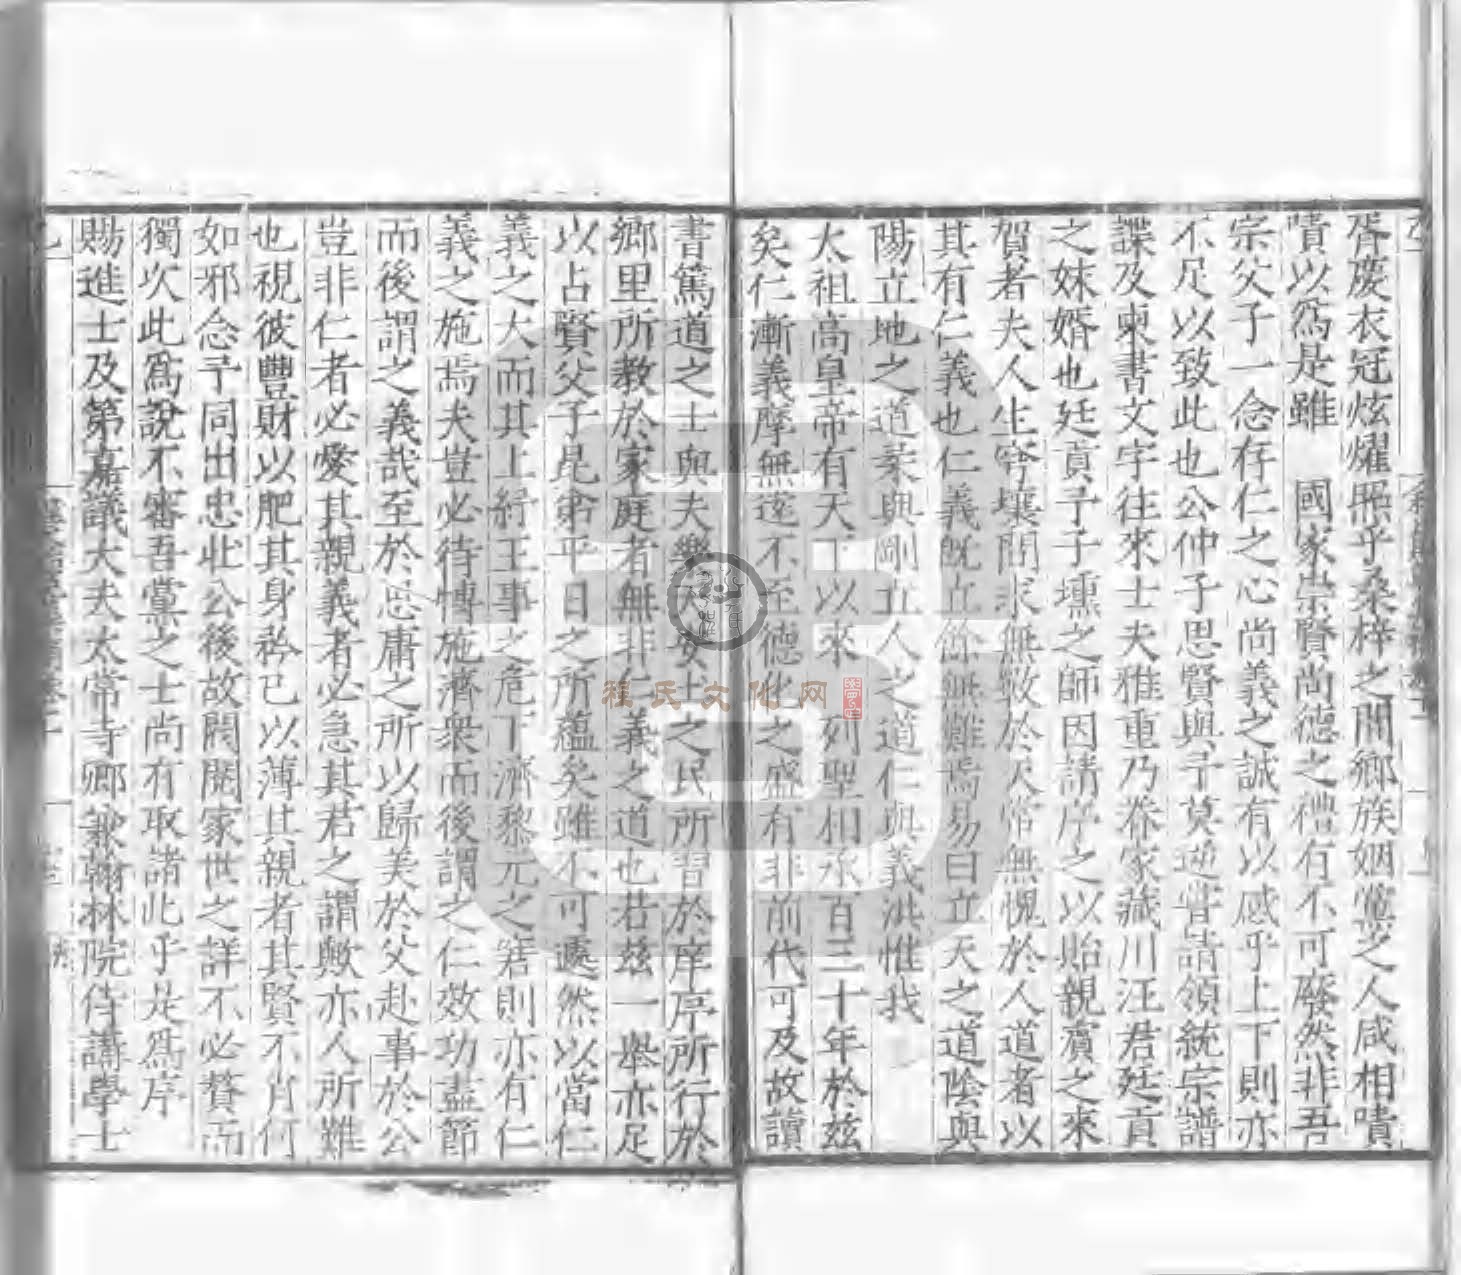 胥慶衣冠炫燿照乎桑梓之間鄉族姻黨之人咸相嘖
嘖以爲是雖　國家崇賢尚德之禮有不可廢然非吾
宗父子一念存仁之心尚義之誠有以感乎上下則亦
不足以致此也公仲子思賢與予莫逆嘗請領統宗譜
諜及柬書文字往來士夫雅重乃眷家藏川汪君廷貢
之妹婚也廷貢予子壎之師因請序之以貽親賓之來
賀者夫人生穹壤間求無斁於天常無愧於人道者以
其有仁義也仁義旣立餘無難焉易曰立天之道陰與
陽立地之道柔與剛立人之道仁與義洪惟我
太祖高皇帝有天下以來　列聖相承百三十年於茲
矣仁漸義摩無遠不至德化之盛有非前代可及故讀
書篤道之士與夫樂天安土之民所習於庠序所行於
鄉里所教於家庭者無非仁義之道也若茲一舉亦足
以占賢父子昆弟平日之所蘊矣雖不可遽然以當仁
義之大而其上紓王事之危下濟黎元之窘則亦有仁
義之施焉夫豈必待博施濟衆而後謂之仁效功盡節
而後謂之義哉至於思庸之所以歸美於父赴事於公
豈非仁者必愛其親義者必急其君之謂歟亦人所難
也視彼豐財以肥其身矜己以薄其親者其賢不肖何
如邪念予同出忠壯公後故閥閱家世之詳不必贅而
獨次此爲說不審吾黨之士尚有取諸此乎是爲序
賜進士及第嘉議大夫太常寺卿兼翰林院侍講學士
程氏文化网